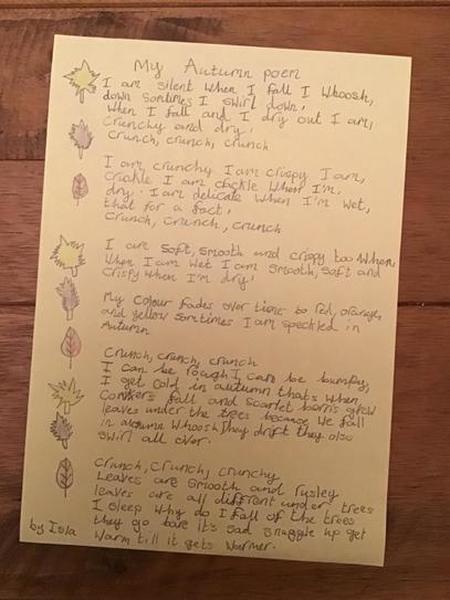 My Autumn poem
I am silent when I fall I Whoosh,
down somtimes I swirl down,
When I fall and I dry out I am,
crunchy and dry,
crunch, crunch, crunch
I am crunchy I am crispy I am,
crickle I am cackle when I'm,
dry. I am delicate when I'm wet,
that for a fact,
crunch, crunch, crunch
I are soft, smooth and crispy too When,
When I am wet I am smooth, soft and
crispy when I'm dry,
My colour fades over time to red, orange,
and yellow somtimes I am speckled in
Autumn
Crunch, crunch, crunch
I can be rough I can be bumpy,
I get cold in autumn thats when,
Conkers fall and scarlet berris grow
leaves under the trees because We fall
in autumn Whoosh they drift they also
swirl all over.
Crunch, crunch, crunchy
Leaves are smooth and rusley
leaves are all different under trees
I sleep why do I fall of the trees
they go bare it's sad snuggle up get
warm till it gets warmer.
by Isla